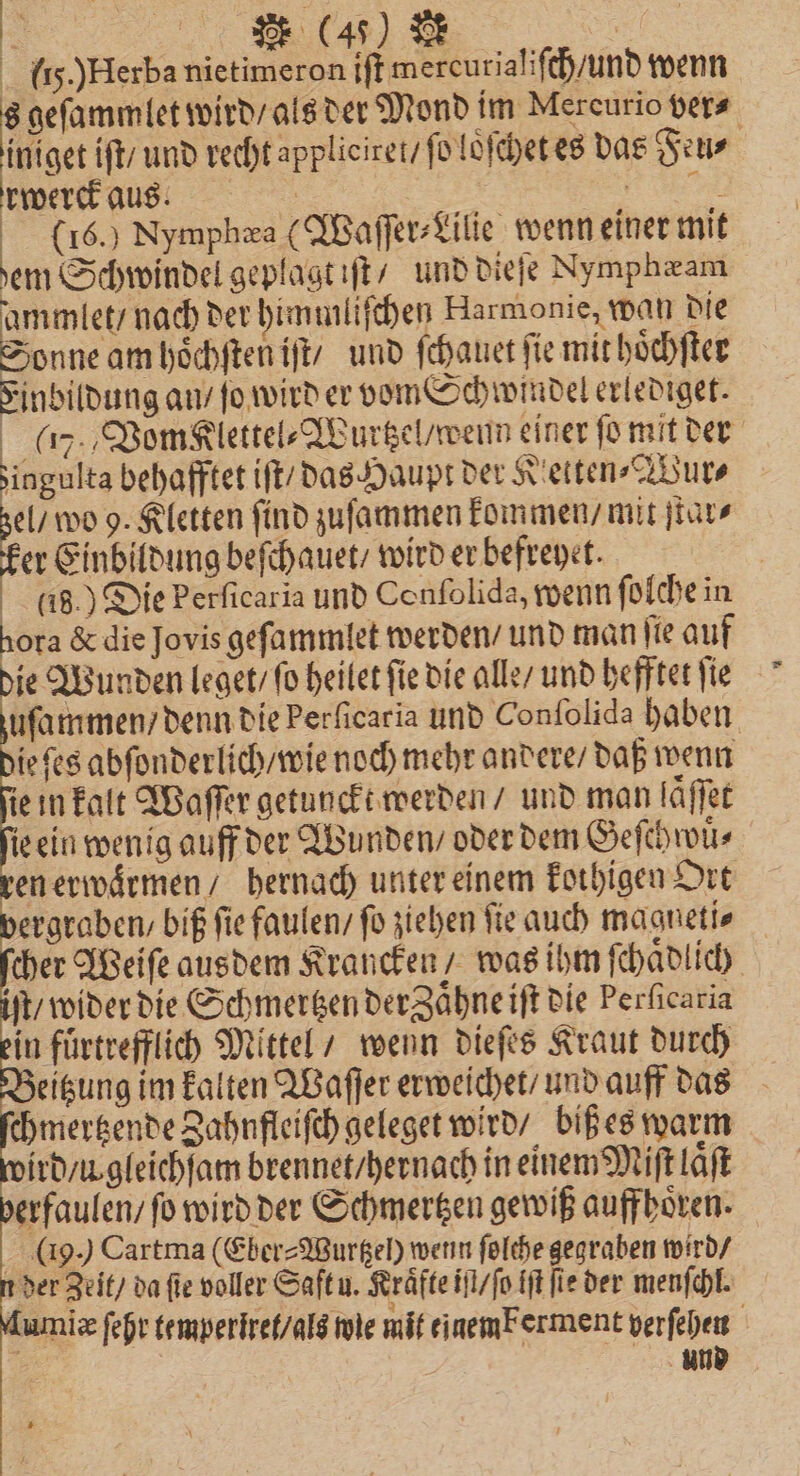 (45)
(15.) Herba nietimeron iſt mercurialiſch/und wenn
s geſammlet wird/ als der Mond im Mercurio ver⸗
iniget iſt/ und recht appliciret/ ſo loͤſchet es das Feu⸗
rwerck aus.
(16.) Nymphæa (Waſſer⸗Lilie wenn einer mit
dem Schwindel geplagt iſt/ und dieſe Nymphæam
ſammlet/ nach der himmliſchen Harmonie, wan die
Sonne am hoͤchſten iſt/ und ſchauet ſie mit hoͤchſter
Einbildung an/ ſo wird er vom Schwindel erlediget.
(17. Vom Klettel⸗Wurtzel/wenn einer ſo mit der
Singulta behafftet iſt/ das Haupt der Kletten⸗Wur⸗
zel/ wo 9. Kletten ſind zuſammen kommen/ mit ſtar⸗
ker Einbildung beſchauet/ wird er befreyet.
(18.) Die Perſicaria und Conſolida, wenn ſolche in
hora & die Jovis geſammlet werden/ und man ſie auf
die Wunden leget/ ſo heilet ſie die alle/ und hefftet ſie
zuſammen/ denn die Perſicaria und Conſolida haben
dieſes abſonderlich/wie noch mehr andere/ daß wenn
ſie in kalt Waſſer getunckt werden/ und man laͤſſet
ſie ein wenig auff der Wunden/ oder dem Geſchwuͤ⸗
ren erwaͤrmen/ hernach unter einem kothigen Ort
vergraben/ biß ſie faulen/ ſo ziehen ſie auch magneti⸗
ſcher Weiſe aus dem Krancken/ was ihm ſchaͤdlich
iſt/ wider die Schmertzen der Zaͤhne iſt die Perſicaria
ein fuͤrtrefflich Mittel/ wenn dieſes Kraut durch
Beitzung im kalten Waſſer erweichet/ und auff das
ſchmertzende Zahnfleiſch geleget wird/ biß es warm
wird/u. gleichſam brennet/hernach in einem Miſt laͤſt
verfaulen/ ſo wird der Schmertzen gewiß auffhoͤren.
(19.) Cartma (Eber⸗Wurtzel) wenn ſolche gegraben wird/
n der Zeit/ da ſie voller Saft u. Kraͤfte iſt/ſo iſt ſie der menſchl.
Mumiæ ſehr temperiret/als wie mit einem Ferment verſehen
und